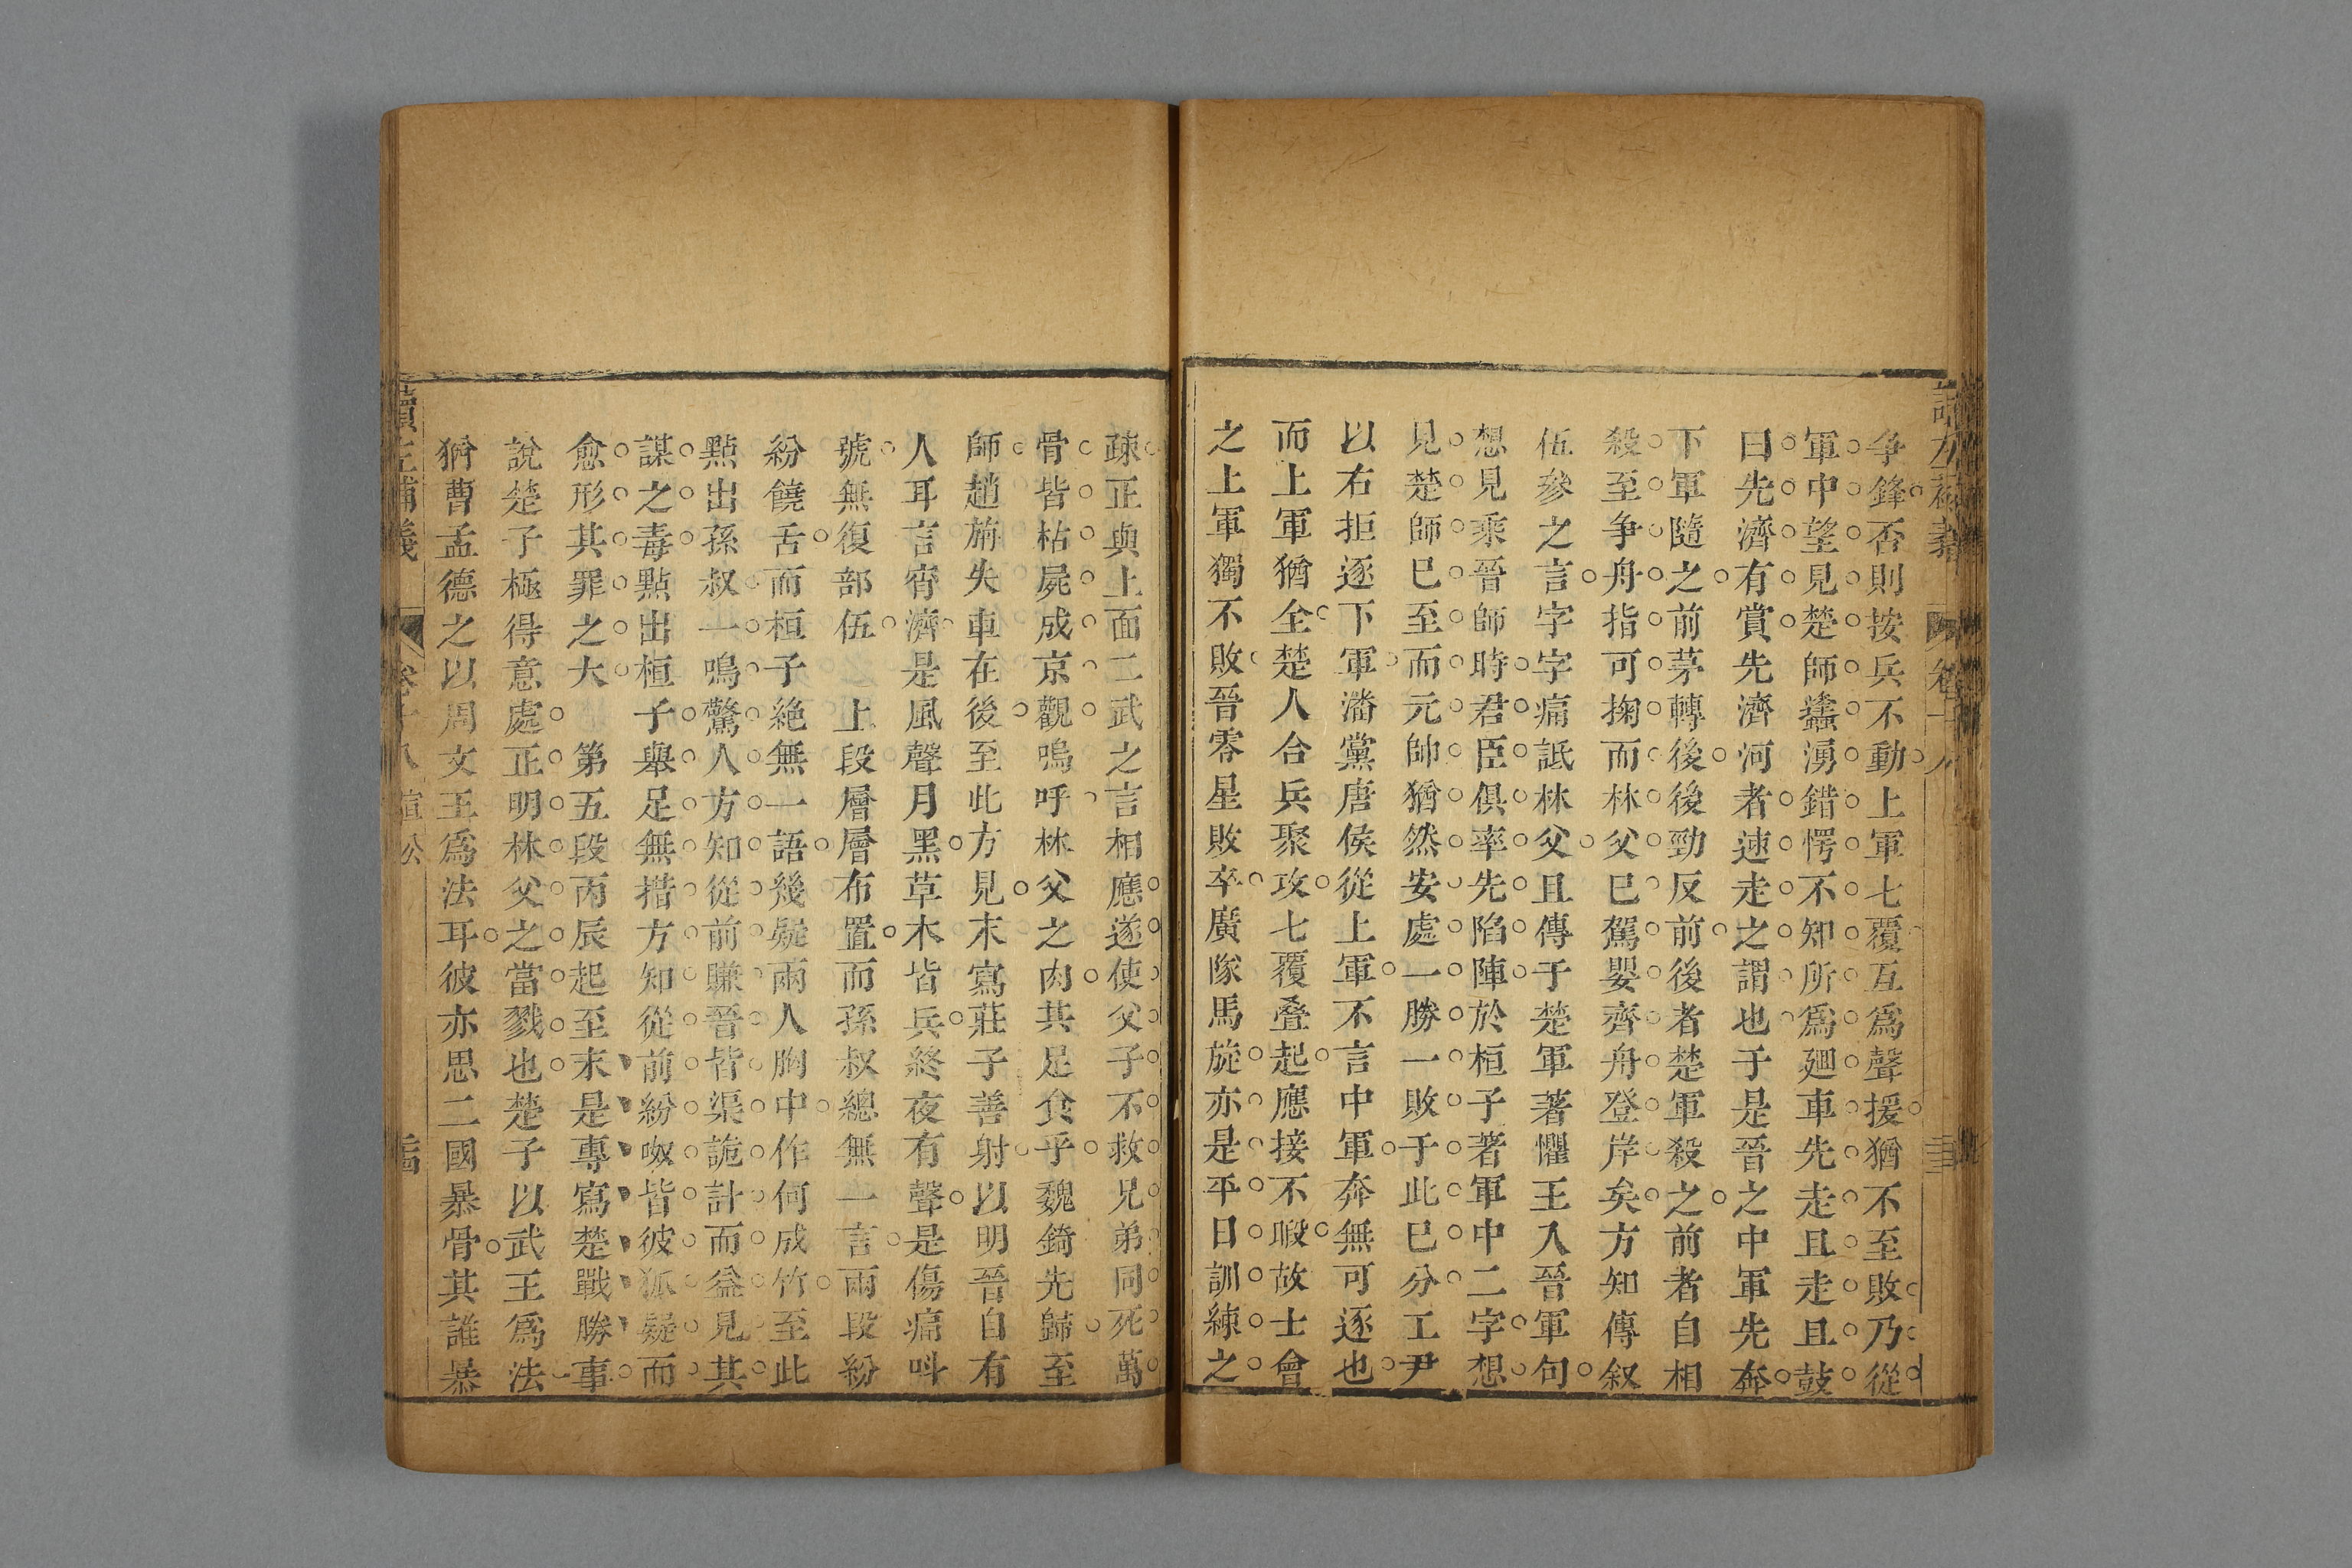 争鋒否則按兵不動上軍七覆互爲聲援猶不至敗乃從
軍中望見楚師蠭湧錯愕不知所爲廻車先走且走且鼓
曰先濟有賞先濟河者速走之謂也于是晉之中軍先奔
下軍隨之前茅轉後後勁反前後者楚軍殺之前者自相
殺至争舟指可掬而林父已駕嬰齊舟登岸矣方知傳叙
伍參之言字字痛詆林父且傳于楚軍著懼王入晉軍句
想見乘晉師時君臣俱率先陷陣於桓子著軍中二字想
見楚師巳至而元帥猶然安處一勝一敗于此巳分工尹
以右拒逐下軍潘黨唐侯從上軍不言中軍奔無可逐也
而上軍猶全楚人合兵聚攻七覆叠起應接不暇故士會
之上軍獨不敗晉零星敗卒廣隊馬旋亦是平日訓練之
疎正與上面二武之言相應遂使父子不救兄弟同死萬
骨皆枯屍成京觀嗚呼林父之肉其足食乎魏錡先歸至
師趙旃失車在後至此方見末寫莊子善射以明晉自有
人耳言宵濟是風聲月黑草木皆兵終夜有聲是傷痛呌
號無復部伍 上段層層布置而孫叔總無一言兩段紛
紛饒舌而桓子絶無一語幾疑兩人胸中作何成竹至此
點出孫叔一鳴驚人方知從前賺晉皆渠詭計而益見其
謀之毒點出桓子舉足無措方知從前紛呶皆彼狐疑而
愈形其罪之大 第五段丙辰起至末是專寫楚戰勝事
說楚子極得意處正明林父之當戮也楚子以武王爲法
猶曹孟德之以周文王爲法耳彼亦思二國暴骨其誰暴
讀左補義 卷十八 宣公